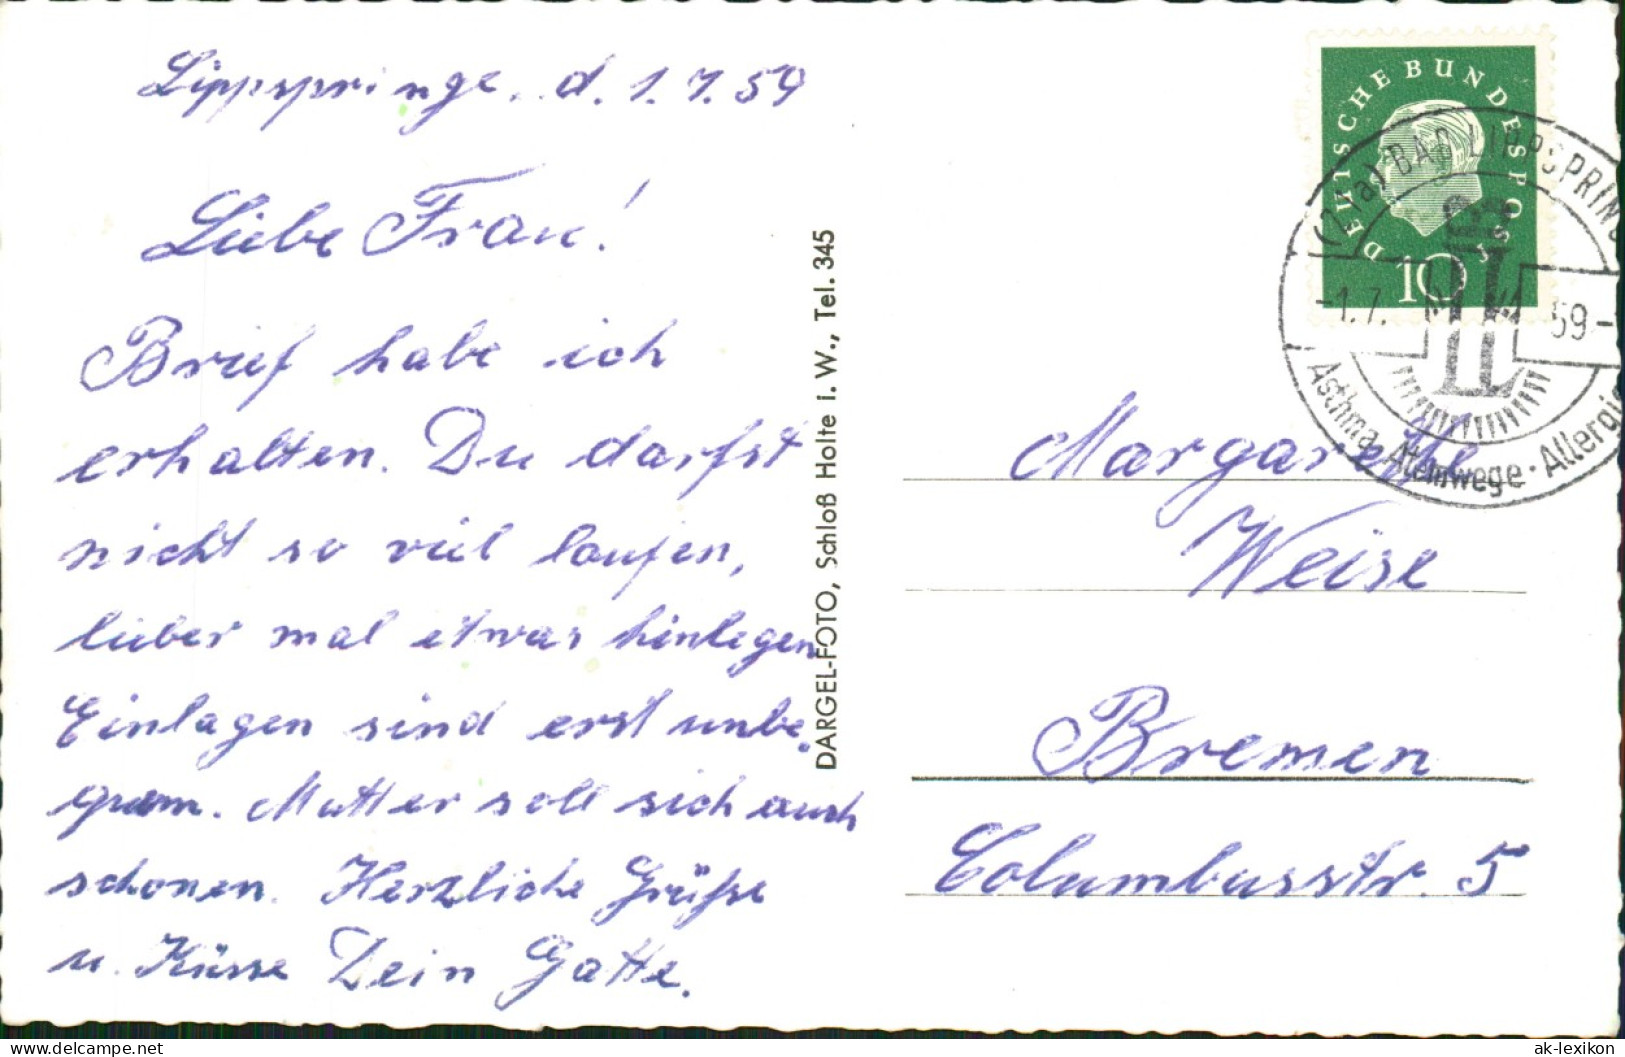 Lippspringe, d. 1.7.59
Liebe Frau!
Brief habe ich
erhalten. Du darfst
nicht so viel laufen,
lieber mal etwas hinlegen
Einlagen sind erst unbe-
quem. Mutter soll sich auch
schonen. Herzliche Grüße
u. Küsse Dein Gatte.
DARGEL-FOTO, Schloß Holte i. W., Tel. 345
DEUTSCHE BUNDESPOST
10
(21a) BAD LIPPSPRING
-1.7. 59-
Asthma · Atemwege · Allergie
Margarethe
Weise
Bremen
Columbusstr. 5
www.delcampe.net
ak-lexikon